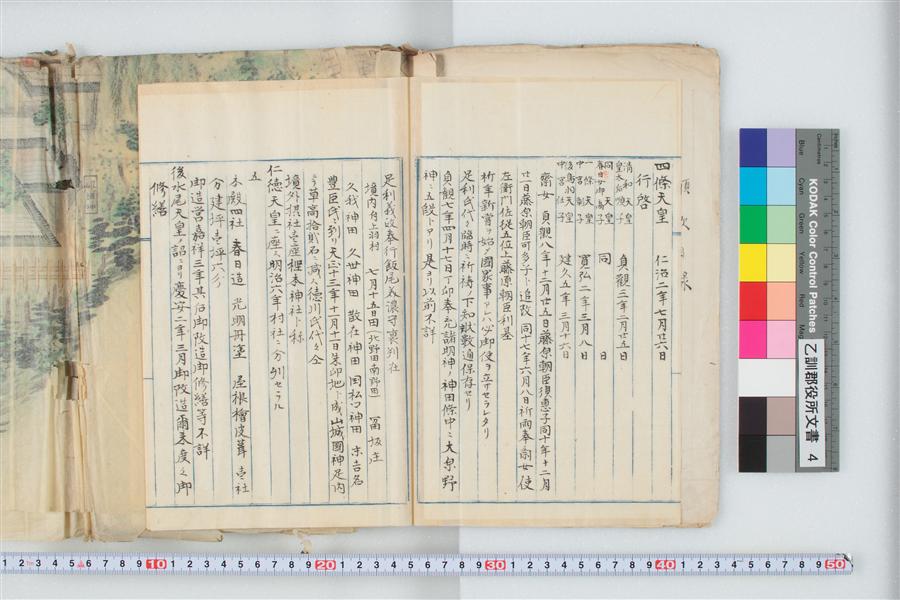 四條天皇　仁治二年七月廿六日
行啓
清和天皇
皇太后明子　貞觀三年二月廿五日
同天皇
春日女御高子　同　日
一條天皇
中宮彰子　寛弘二年三月八日
後鳥羽天皇
中宮任子　建久五年三月十六日
齋女　貞觀八年十二月廿五日藤原朝臣須惠子同十年十二月
廿一日藤原朝臣可多子ト追改　同十七年六月八日祈雨奉齋女使
左衛門佐從五位上藤原朝臣利基
祈年新嘗ヲ始メ國家事アレバ必御使ヲ立サセラレタリ
足利氏代々臨時ニ祈祷ノ下知狀數通保存セリ
貞觀七年四月十七日丁卯奉充諸明神ノ神田條中ニ大原野
神ニ五段トアリ是ヨリ以前不詳
足利義政奉行飯尾美濃守裏判在
境内寺上羽村　七月十五日田（北野田南野田）　冨坂庄
久我神田　久世神田　散在神田　因私ワ神田　末吉名
豊臣氏ニ到リ天正十三年十一月十一日朱印地ト成山城國神足内
ニテ草高拾貳石ニ減ズ德川氏代々仝
境外摂社壱座樫本神社ト称
仁德天皇ニ座ス明治六年村社ニ分列セラル
五
本殿四社　春日造　光明丹塗　屋根檜皮葺　壱社
分建坪壱坪六分
御造営嘉祥三年其后御改造御修繕等不詳
後水尾天皇ノ詔ニヨリ慶安二年三月御改造爾来度々御
修繕
KODAK Color Control Patches
Blue
Cyan
Green
Yellow
Red
乙訓郡役所文書　4
10
20
30
40
50